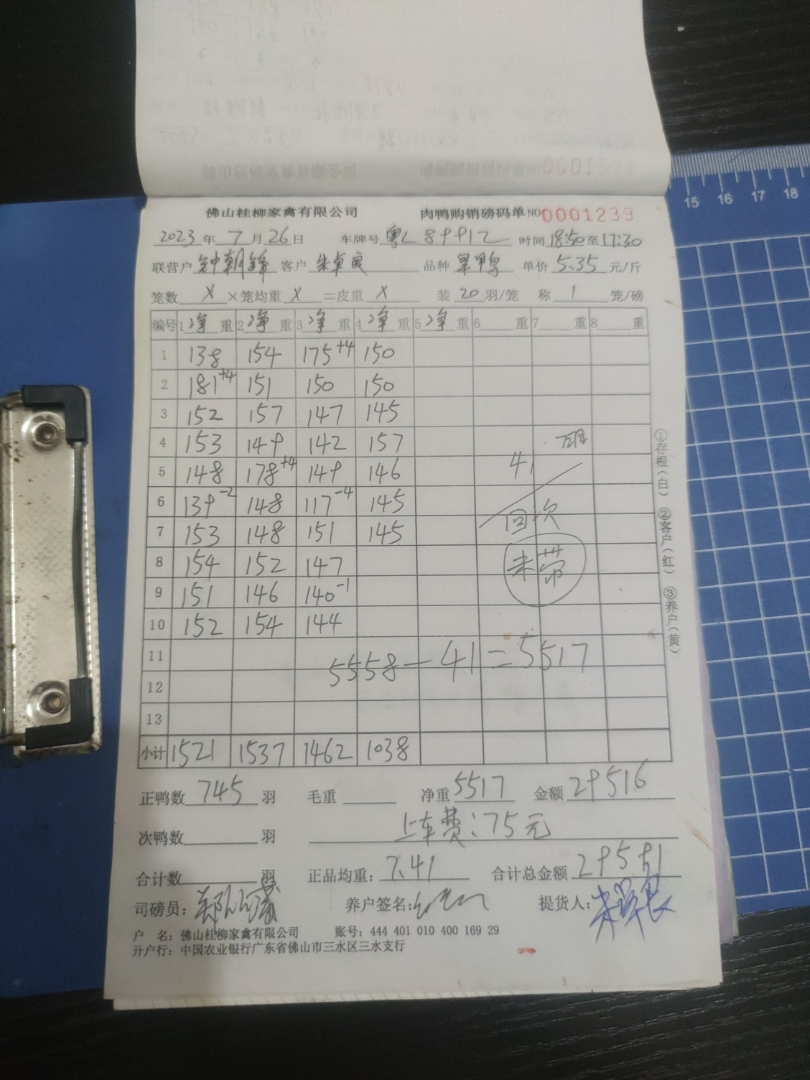 佛山桂柳家禽有限公司 肉鸭购销磅码单 NO 0001239
2023 年 7 月 26 日 车牌号 粤L 时间 18:50 至 17:30
联营户 钟朝锋 客户 朱卓良 品种 单价 5.35 元/斤
笼数 X ×笼均重 X =皮重 X 装 20 羽/笼 称 1 笼/磅
编号 1 净 重 2 净 重 3 净 重 4 净 重 5 净 重 6 重 7 重 8 重
1 138 154 175+4 150
2 181+4 151 150 150
3 152 157 147 145
4 153 149 142 157
5 148 178+4 149 146 4,
6 139-2 148 117-4 145
7 153 148 151 145 回次
8 154 152 147 未带
9 151 146 140-1
10 152 154 144
11
5558-41=5517
12
13
小计 1521 1537 1462 1038
正鸭数 745 羽 毛重 净重 5517 金额 29516
次鸭数 羽 上车费:75元
合计数 羽 正品均重: 7.41 合计总金额 29591
司磅员: 养户签名: 提货人:
户 名: 佛山桂柳家禽有限公司 账号: 444 401 010 400 169 29
开户行: 中国农业银行广东省佛山市三水区三水支行
①存根(白) ②客户(红) ③养户(黄)
15 16 17 18